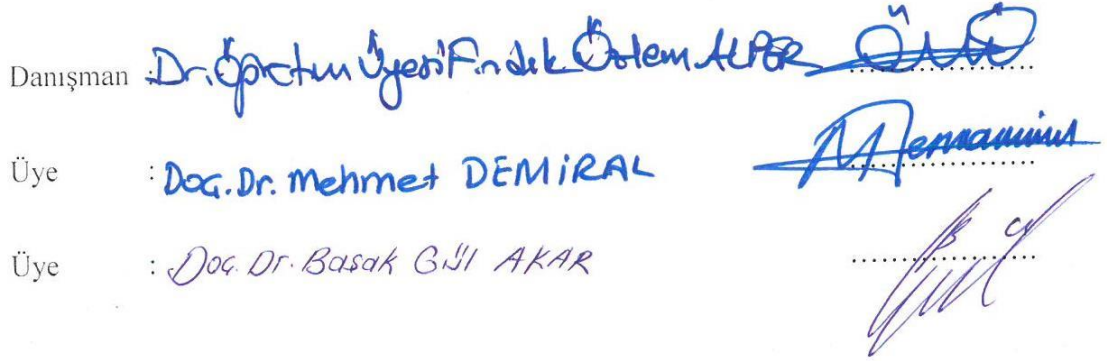 Danışman : Dr. Öğretim Üyesi Fındık Özlem ALPER
Üye : Doç. Dr. Mehmet DEMİRAL
Üye : Doç. Dr. Başak Gül AKAR